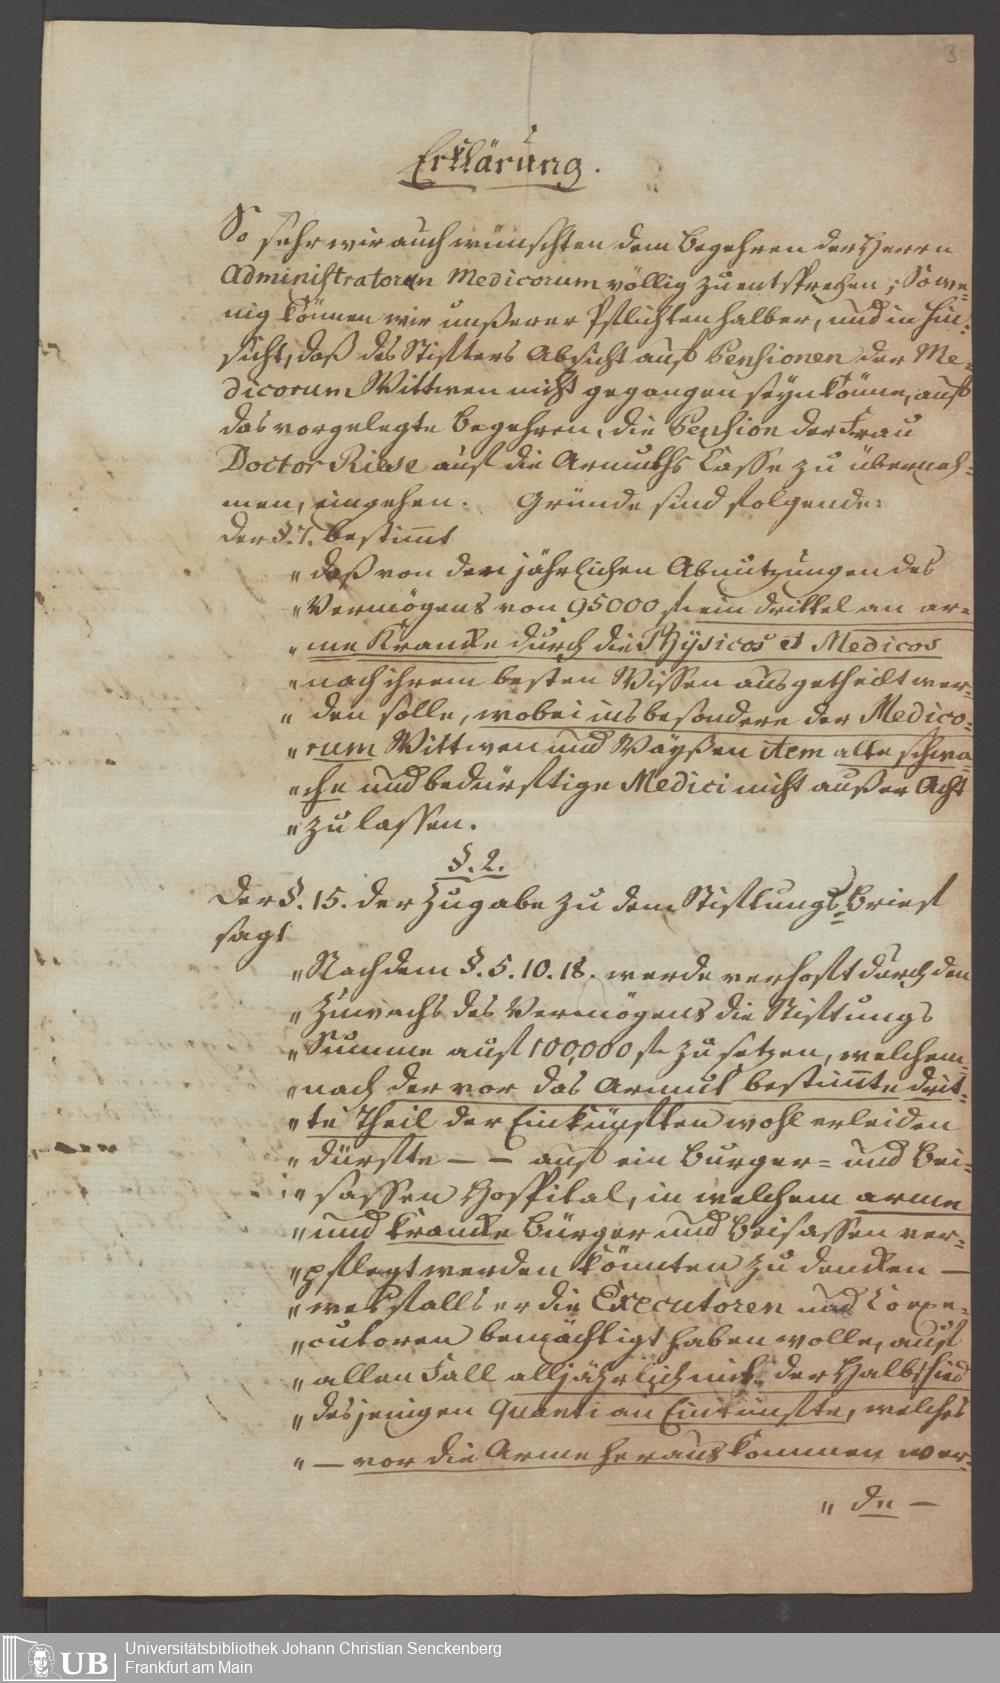 3
Erklärung.
So sehr wir auch wünschten dem Begehren der Herren
Administratoren Medicorum völlig zu entsprechen; So we=
nig können wir unßerer Pflichten halber, und in Hin=
sicht, daß des Stifters Absicht auf Pensionen der Me=
dicorum Wittwen nicht gegangen seyn könne, auf
das vorgelegte Begehren, die Pension der Frau
Doctor Riese auf die Armuths Casse zu überneh=
men, eingehen. Gründe sind folgende:
der §. 7. bestimt
„ daß von den jährlichen Abnutzungen des
„ Vermögens von 95000 f. ein drittel an ar=
„ me Krancke durch die Physicos et Medicos
„ nach ihrem besten Wissen ausgetheilt wer=
„ den solle, wobei insbesondere der Medico=
„ rum Wittwen und Wayßen item alte schwa=
„ che und bedürftige Medici nicht außer Acht
„ zu lassen.
§. 2.
Der §. 15. der Zugabe zu dem Stiftungs=Brief
sagt
„ Nach dem §. 5. 10. 18. werde verhoft durch den
„ Zuwachs des Vermögens die Stiftungs
„ Summe auf 100,000 f. zu setzen, welchem=
„ nach der vor das Armut bestimte drit=
„ te Theil der Einkünften wohl erleiden
„ dürfte — — auf ein Burger= und Bei=
„ sassen Hospital, in welchem arme
„ und krancke Bürger und Beisassen ver=
„ pflegt werden könnten zu dencken —
„ wesfalls er die Executoren und Coexe=
„ cutoren bemächtigt haben wolle, auf
„ allen Fall alljährlich mit der Halbschied
„ desjenigen Quanti an Einkünfte, welches
„ — vor die Arme heraus kommen wer=
„ de —
UB
Universitätsbibliothek Johann Christian Senckenberg
Frankfurt am Main